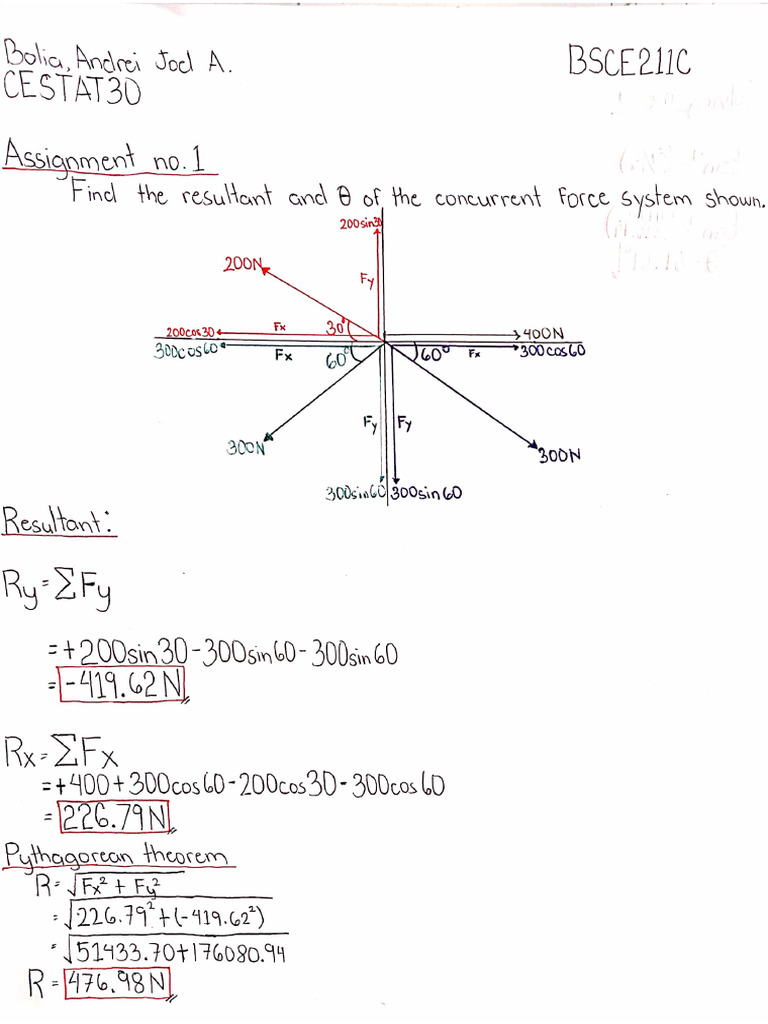 Bolia, Andrei Joel A. BSCE211C
CESTAT30
Assignment no. 1
Find the resultant and θ of the concurrent force system shown.
200sin30
200N
Fy
200cos30 Fx 30° 400N
300cos60 Fx 60° 60° Fx 300cos60
Fy Fy
300N 300N
300sin60 300sin60
Resultant:
Ry = ΣFy
= +200sin30 - 300sin60 - 300sin60
= -419.62 N
Rx = ΣFx
= +400 + 300cos60 - 200cos30 - 300cos60
= 226.79 N
Pythagorean theorem
R = √Fx² + Fy²
= √226.79² + (-419.62²)
= √51433.70 + 176080.94
R = 476.98 N